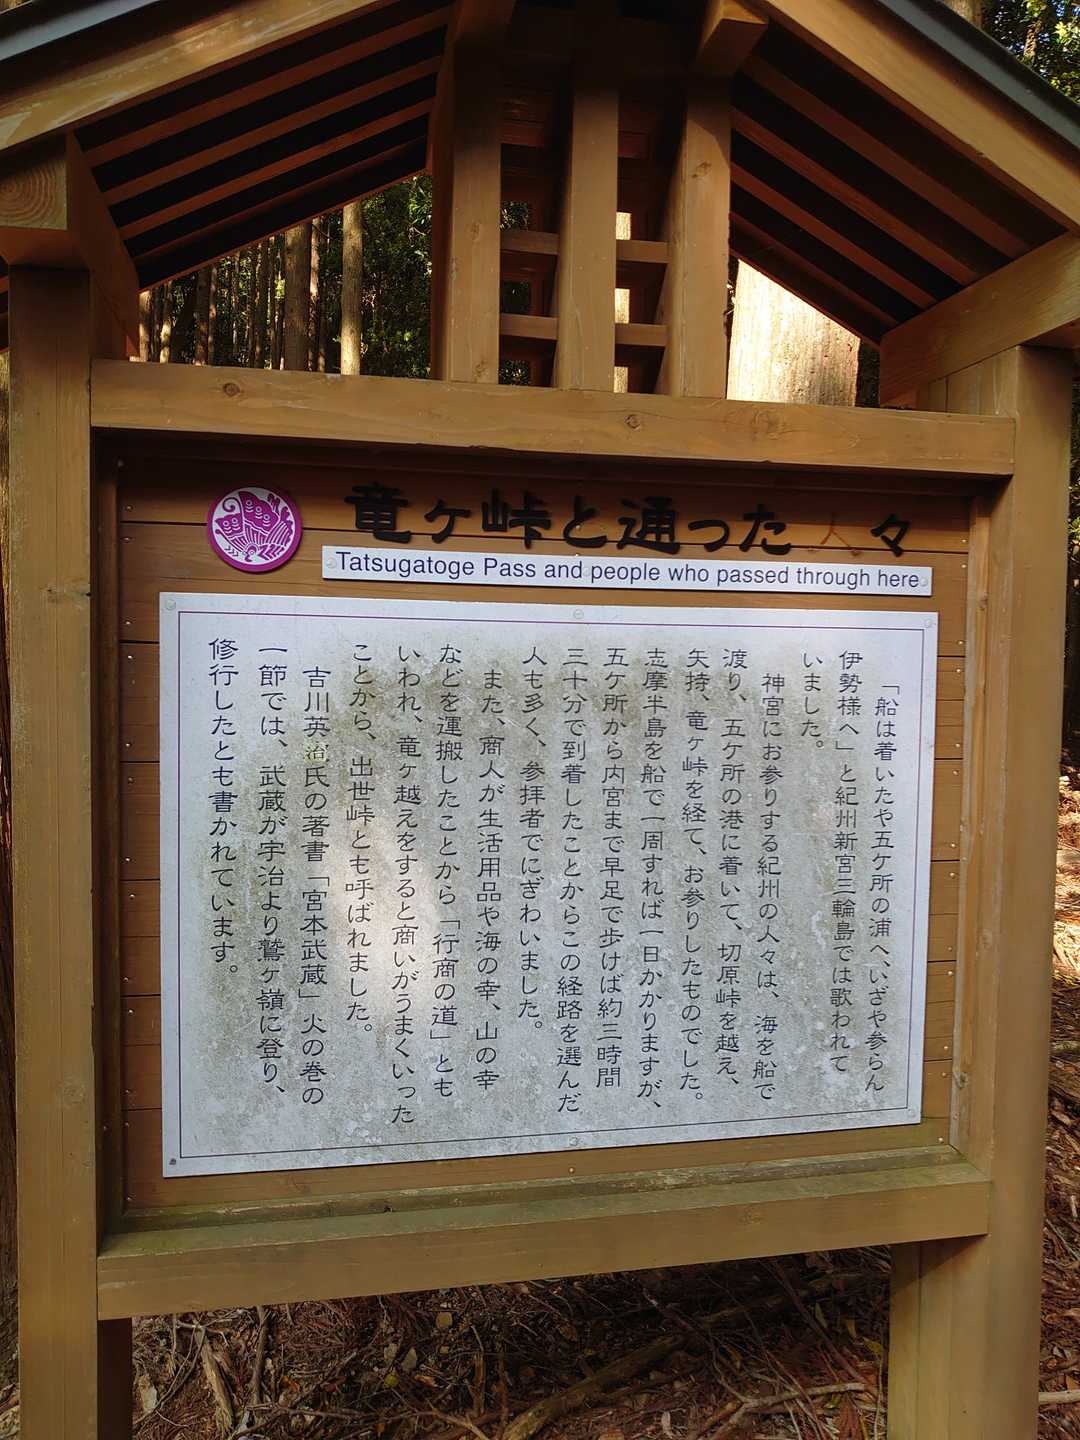 竜ヶ峠と通った人々
Tatsugatoge Pass and people who passed through here
「船は着いたや五ケ所の浦へ、いざや参らん
伊勢様へ」と紀州新宮三輪島では歌われて
いました。
神宮にお参りする紀州の人々は、海を船で
渡り、五ケ所の港に着いて、切原峠を越え、
矢持、竜ヶ峠を経て、お参りしたものでした。
志摩半島を船で一周すれば一日かかりますが、
五ケ所から内宮まで早足で歩けば約三時間
三十分で到着したことからこの経路を選んだ
人も多く、参拝者でにぎわいました。
また、商人が生活用品や海の幸、山の幸
などを運搬したことから「行商の道」とも
いわれ、竜ヶ越えをすると商いがうまくいった
ことから、出世峠とも呼ばれました。
吉川英治氏の著書「宮本武蔵」火の巻の
一節では、武蔵が宇治より鷲ヶ嶺に登り、
修行したとも書かれています。